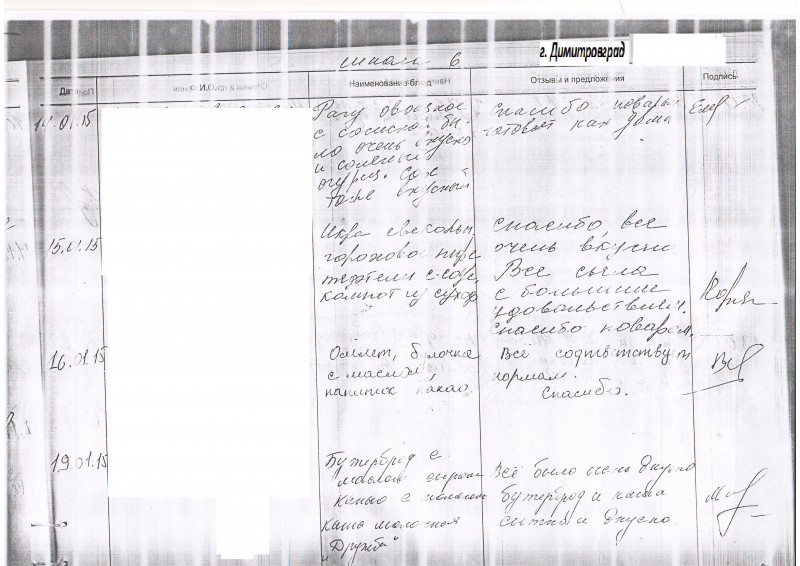 г. Димитровград
школа 6
Наименование блюда
Отзывы и предложения
Подпись
14.01.15
Рагу овощное
с сосиской бы-
ло очень вкусно
и соленый
огурец. Сок
тоже вкусный
Спасибо повары
готовят как дома
15.01.15
Икра свекольн.
гороховое пюре
тефтели с соус.
компот из сухоф
Спасибо, все
очень вкусно
Все съела
с большим
удовольствием.
Спасибо поварам.
16.01.15
Омлет, булочка
с маслом,
напиток какао.
Всё
нормам.
Спасибо.
19.01.15
Бутерброд с
маслом сыром
какао с молоком
каша молочная
"Дружба"
Всё было очень вкусно
бутерброд и каша
сытна и вкусно.